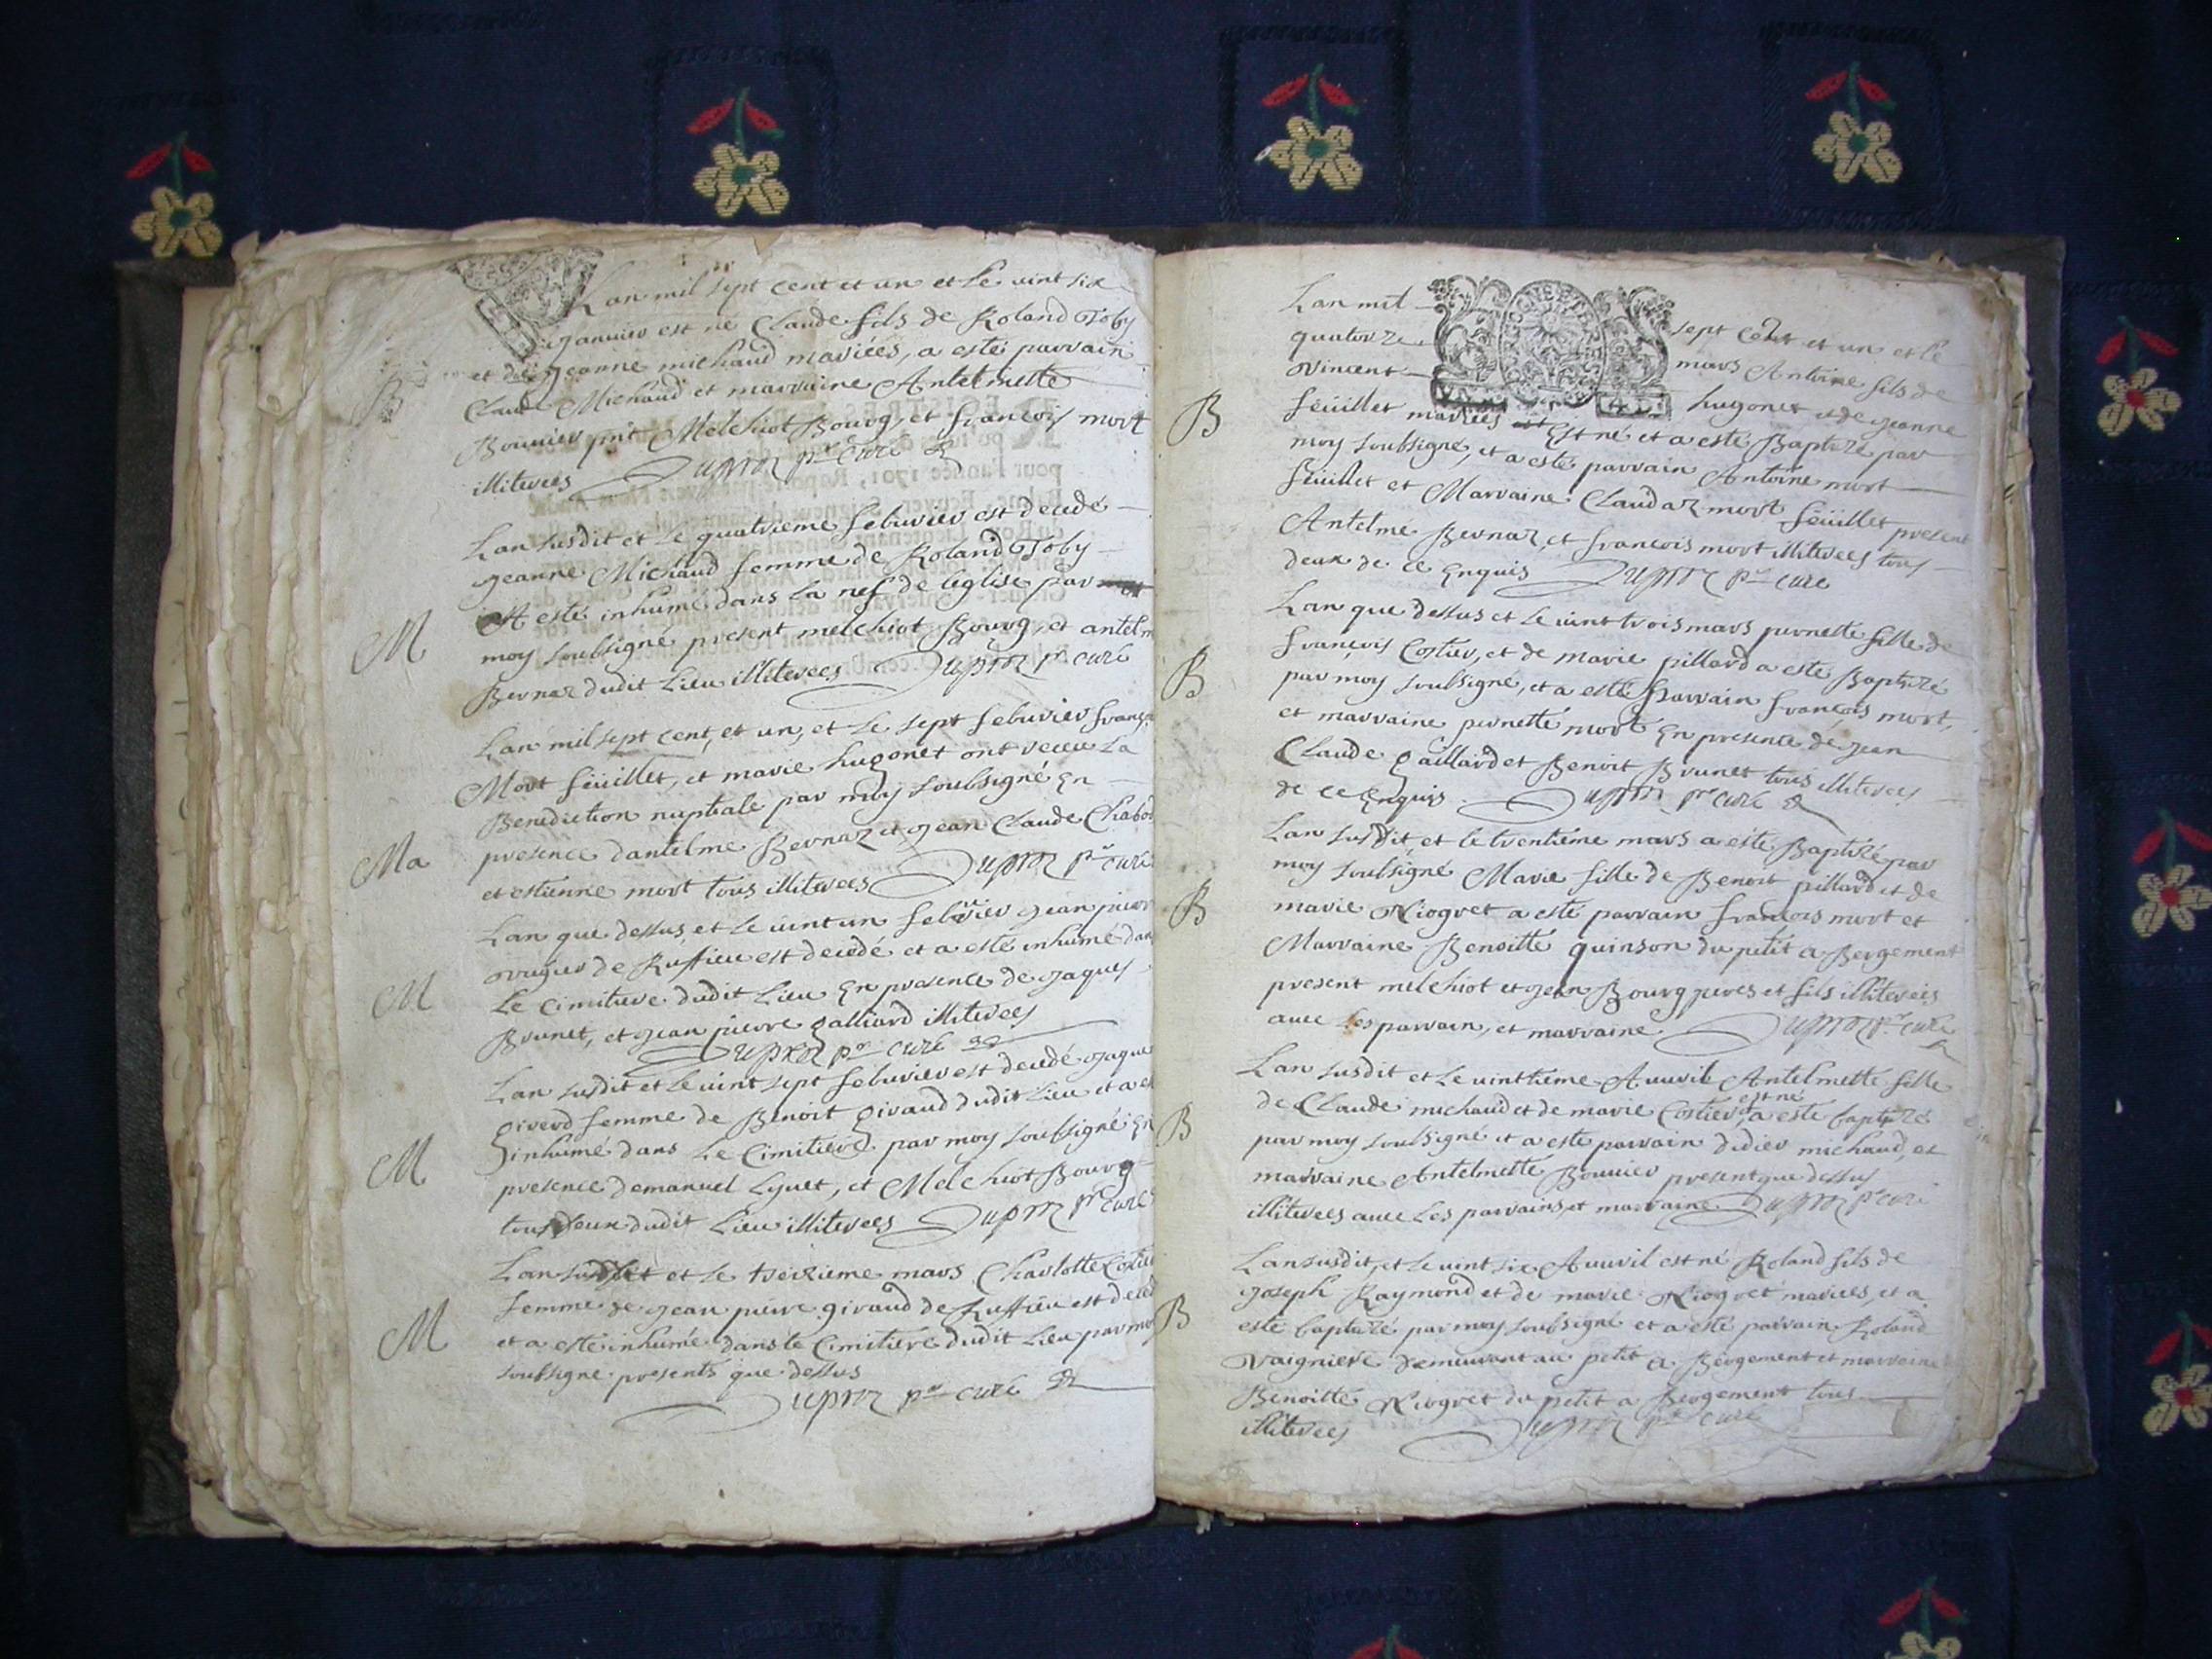 Lan mil sept cent et un et le vint six
janvier est né Claude fils de Roland Toby
et de jeanne michaud mariées, a esté parrain
B
Claude Michaud et marraine Antelmette
Bouvier pnt Melchiot Bourg, et francois mort
illiterees Dupraz pr curé
Lan susdit et le quatrieme febvrier est decedé
jeanne Michaud femme de Roland Toby
et esté inhumé dans la nef de leglise par
M
moy soubsigné present melchiot Bourg, et antelm
Bernaz dudit Lieu illiterees Dupraz pr curé
Lan mil sept cent, et un, et le sept febvrier franç
Mort feüillet, et marie hugonet ont receu la
Benediction nuptiale par moy soubsigné En
Ma
presence dantelme Bernaz et jean Claude Chabod
et estienne mort tous illiterees Dupraz pr curé
Lan que dessus, et le vint un febvrier jean pierr
de Ruffieu est decedé et a esté inhumé dan
M
Le Cimitiere dudit Lieu En presence de jaques
Brunet, et jean pierre galliard illiterees
Dupraz pr curé
Lan susdit et le vint sept febvrier est decedé jaque
girerd femme de Benoit givaud dudit Lieu et a es
M
inhumé dans Le Cimitiere par moy soubsigné En
presence demanuel Lyuet, et Melchiot Bourg
tous deux dudit Lieu illiterees Dupraz pr curé
Lan susdit et le treizieme mars Charlotte Costie
femme de jean pierre givaud de Ruffieu est deced
M
et a esté inhumé dans le Cimitiere dudit Lieu par mo
soubsigne presents que dessus
Dupraz pr curé
Lan mil sept cent et un et le
quatorze mars Antoine fils de
vincent hugonet et de jeanne
B
feüillet mariées est Est né et a esté Baptizé par
moy soubsigné, et a esté parrain Antoine mort
feüillet et Marraine Claudaz mort feüillet present
Antelme Bernaz, et francois mort illiterees tous
deux de ce Enquis Dupraz pr curé
Lan que dessus et le vint trois mars pernette fille de
françois Costier, et de marie pillard a esté Baptizé
B
par moy soubsigné, et a esté parrain francois mort,
et marraine pernette mort En presence de jean
Claude gaillard et Benoit Brunet tous illiterees
de ce Enquis Dupraz pr curé
Lan susdit, et le trentieme mars a esté Baptizé par
moy soubsigné Marie fille de Benoit pillard et de
B
marie Riogret a esté parrain francois mort et
Marraine Benoitte quinson du petit a Bergement
present melchiot et jean Bourg peres et fils illiterees
avec Les parrain, et marraine Dupraz pr curé
Lan susdit et Le vinttieme Auvril Antelmette fille
est né
de Claude michaud et de marie Costier, a esté baptizé
B
par moy soubsigné et a esté parrain didier michaud, et
marraine Antelmette Bouvier present que dessus
illiterees avec Les parrains et marraine Dupraz pr curé
Lan susdit, et le vint six Auvril est né Roland fils de
joseph Raymond et de marie Riogret mariees, et a
B
esté baptizé par moy soubsigné et a esté parrain Roland
Vaigniere demeurant au petit a Bergement et marraine
Benoitte Riogret du petit a Bergement tous
illiterees Dupraz pr curé